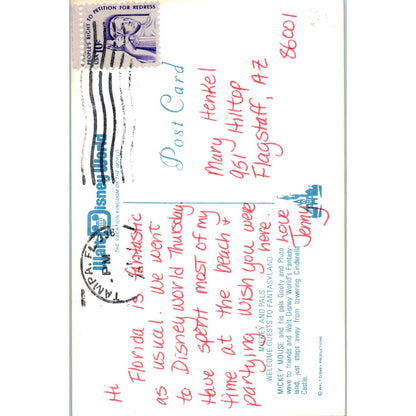 Hi
Florida is fantastic
as usual. We went
to Disney World Thursday
Have spent most of my
time at the beach &
partying. Wish you were
here.
Love
Jenny
Walt Disney World
THE VACATION KINGDOM OF THE WORLD
Post Card
Mary Henkel
951 Hilltop
Flagstaff, AZ
86001
PEOPLE'S RIGHT TO PETITION FOR REDRESS
USA 10c
TAMPA, FL
PM
MICKEY AND PALS
WELCOME GUESTS TO FANTASYLAND
MICKEY MOUSE and his pals Goofy and Pluto
wave to friends and Walt Disney World's Fantasy-
land, just steps away from towering Cinderella
Castle.
© WALT DISNEY PRODUCTIONS